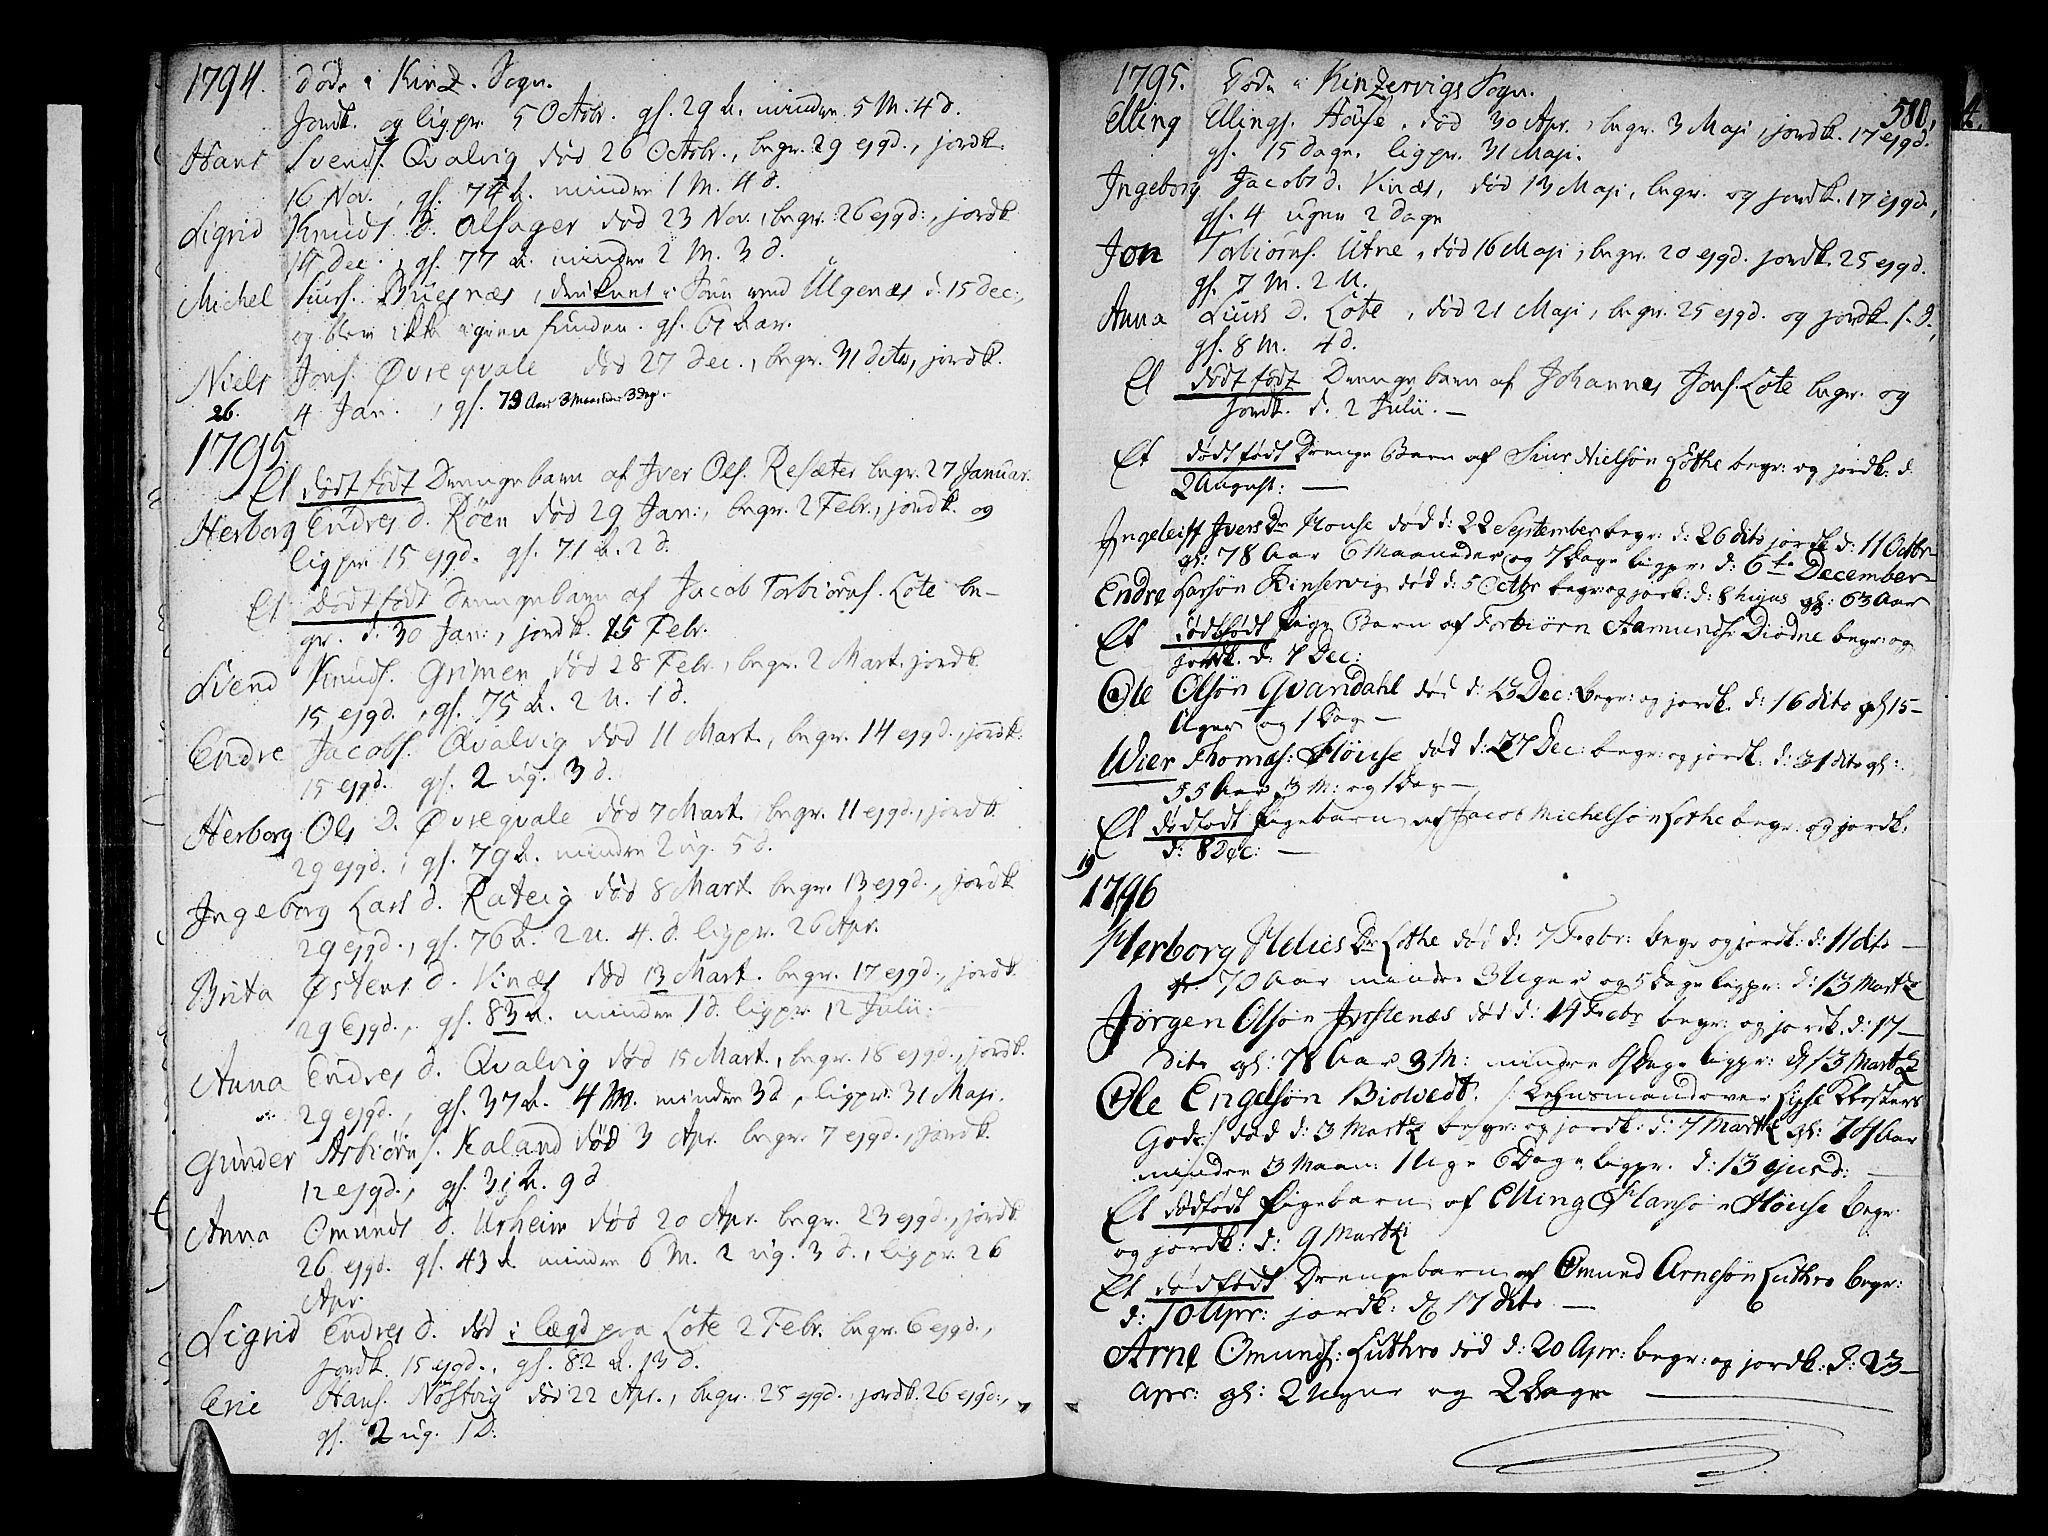 1794. Døde i Kinz. Sogn.
Jordk. og ligpr. 5 Octobr. gl. 29 A. mindre 5 M. 4 d.
Hans Svends. Qvalvig død 26 Octobr., begr. 29 ejqd., jordk.
16 Nov., gl. 74 A. minder 1 M. 4 d.
Sigrid Knuds d. Alsager død 23 Nov., begr. 26 ejqd., jordk.
14 Dec., gl. 77 A. minder 2 M. 3 d.
Michel Siurs. Buesnæs, druknet i Søen ved Ulgenæs d. 15 Dec.,
og blev ikke igien funden. gl. 67 Aar.
Niels Jons. Øvreqvale død 27 Dec., begr. 31 dito, jordk.
26. 4 Jan., gl. 73 Aar 3 Maaneder 3 Dge.
1795
Et dødt født Drengebarn af Iver Ols. Resæter begr. 27 Januar.
Herborg Endres d. Röen død 29 Jan:, begr. 2 Febr., jordk. og
ligpr. 15 ejqd. gl. 71 A. 2 d.
Et dødt født Drengebarn af Jacob Torbiörns. Lote be-
gr. d. 30 Jan:, jordk. 15 Febr.
Svend Knuds. Grimen død 28 Febr., begr. 2 Mart. jordk.
15 ejqd., gl. 75 A. 2 U. 1 d.
Endre Jacobs. Qvalvig død 11 Mart., begr. 14 ejqd., jordk.
15 ejqd. gl. 2 ug. 3 d.
Herborg Ols D. Øvreqvale død 7 Mart. begr. 11 ejqd., jordk.
29 ejqd., gl. 79 A. mindre 2 ug. 5 d.
Ingeborg Lars d. Rateig død 8 Mart. begr. 13 ejqd., jordk
29 ejqd., gl. 76 A. 2 U. 4. d. ligpr. 26 Apr.
Brita Østens d. Vinæs død 13 Mart. begr. 17 ejqd., jordk.
29 Ejqd., gl. 83 A. minder 1 d. ligpr. 12 Julii.
Anna Endres d. Qvalvig død 15 Mart., begr. 18 ejqd., jordk.
29 ejqd., gl. 37 A. 4 M. minder 3 d, ligpr. 31 Maji.
Gunder Asbiörns. Kaland død 3 Apr. begr. 7 ejqd., jordk.
12 ejqd., gl. 31 A. 9 d
Anna Omunds d. Urheim død 20 Apr. begr. 23 ejqd., jordk.
26 ejqd. gl. 43 A. mindre 6 M. 2 ug. 3 d., ligpr. 26
Apr.
Sigrid Endres d. død i lægd paa Lote 2 Febr. begr. 6 ejqd.,
jordk. 15 ejqd., gl. 82 A. 13 d.
Eric Hans. Nöstvig død 22 Apr., begr. 25 ejqd. jordk. 26 ejqd.,
gl. 2 ug. 1 D.
1795. Døde i Kinzervigs Sogn. 580.
Elling Ellings. Höuse, død 30 Apr., begr. 3 Maji jordk. 17 ejqd.
gl. 15 dage. ligpr. 31 Maji.
Ingeborg Jacobs d. Vinæs, død 13 Maji, begr. og jordk. 17 ejqd.,
gl. 4 uger 2 dage
Jon Torbiörns. Utne, død 16 Maji, begr. 20 ejqd. jordk. 25 ejqd.
gl. 7 M. 2 U.
Anna Siurs d. Lote, død 21 Maji, begr. 25 ejqd. og jordk. s. d.,
gl. 8 M. 4 d.
Et dødt født Drengebarn af Johannes Jons. Lote begr. og
jordk. d. 2 Julii. —
Et dødt født Drenge Barn af Siur Nielsön Lothe begr: og jordk. d.
2 August: —
Ingeleiff Ivers Dr House død d: 22 September begr: d: 26 dito jordk d: 11 Octbr
gl: 78 Aar 6 Maaneder og 7 Dage ligpr. d: 6te December
Endre Larsön Kinservig død d: 5 Octbr begr: og jork: d: 8 hujus gl: 63 Aar
Et dødtfødt Pige Barn af Torbiörn Aamunds. Diödne begr: og
jordk. d: 7 Dec:
Ole Olsön Qvandahl død d: 13 Dec: begr: og jordk. d: 16 dito gl: 15
Uger og 1 Dag —
Wier Thomas: Höuse død d: 27 Dec: begr: og jordk. d: 31 dito gl:
55 Aar 3 M: og 1 Dag —
Et dødfødt Pigebarn af Jacob Michelsön Lothe begr. og jordk.
d: 8 Dec: —
19
1796
Herborg Helies Dr Lothe død d: 7 Febr: begr og jordk: d: 11 dito
gl. 70 Aar minder 3 Uger og 5 Dage ligpr: d: 13 Martz
Jörgen Olsön Jostenæs død d: 14 Febr begr: og jordk. d: 17
dito gl: 78 Aar 3 M: minder 4 Dage ligpr: d 13 Martz
Ole Engelsön Bidvedt. /: Lehnsmand over Lysse Klosters
Gods:/ død d: 3 Martz begr: og jordk: d: 7 Martz gl: 74 Aar
minder 3 Maan: 1 Uge 6 Dage ligpr. d: 13 ejusd: —
Et dødfødt Pigebarn af Elling Hansön Höuse begr:
og jordk: d: 9 Martz
Et dødfødt Drengebarn af Omund Arnesön Luthro begr:
d: 10 Apr: jordk: d 17 dito —
Arne Omunds: Luthro død d: 20 Apr: begr: og jordk: d: 23
Apr: gl: 2 Uger og 2 Dage